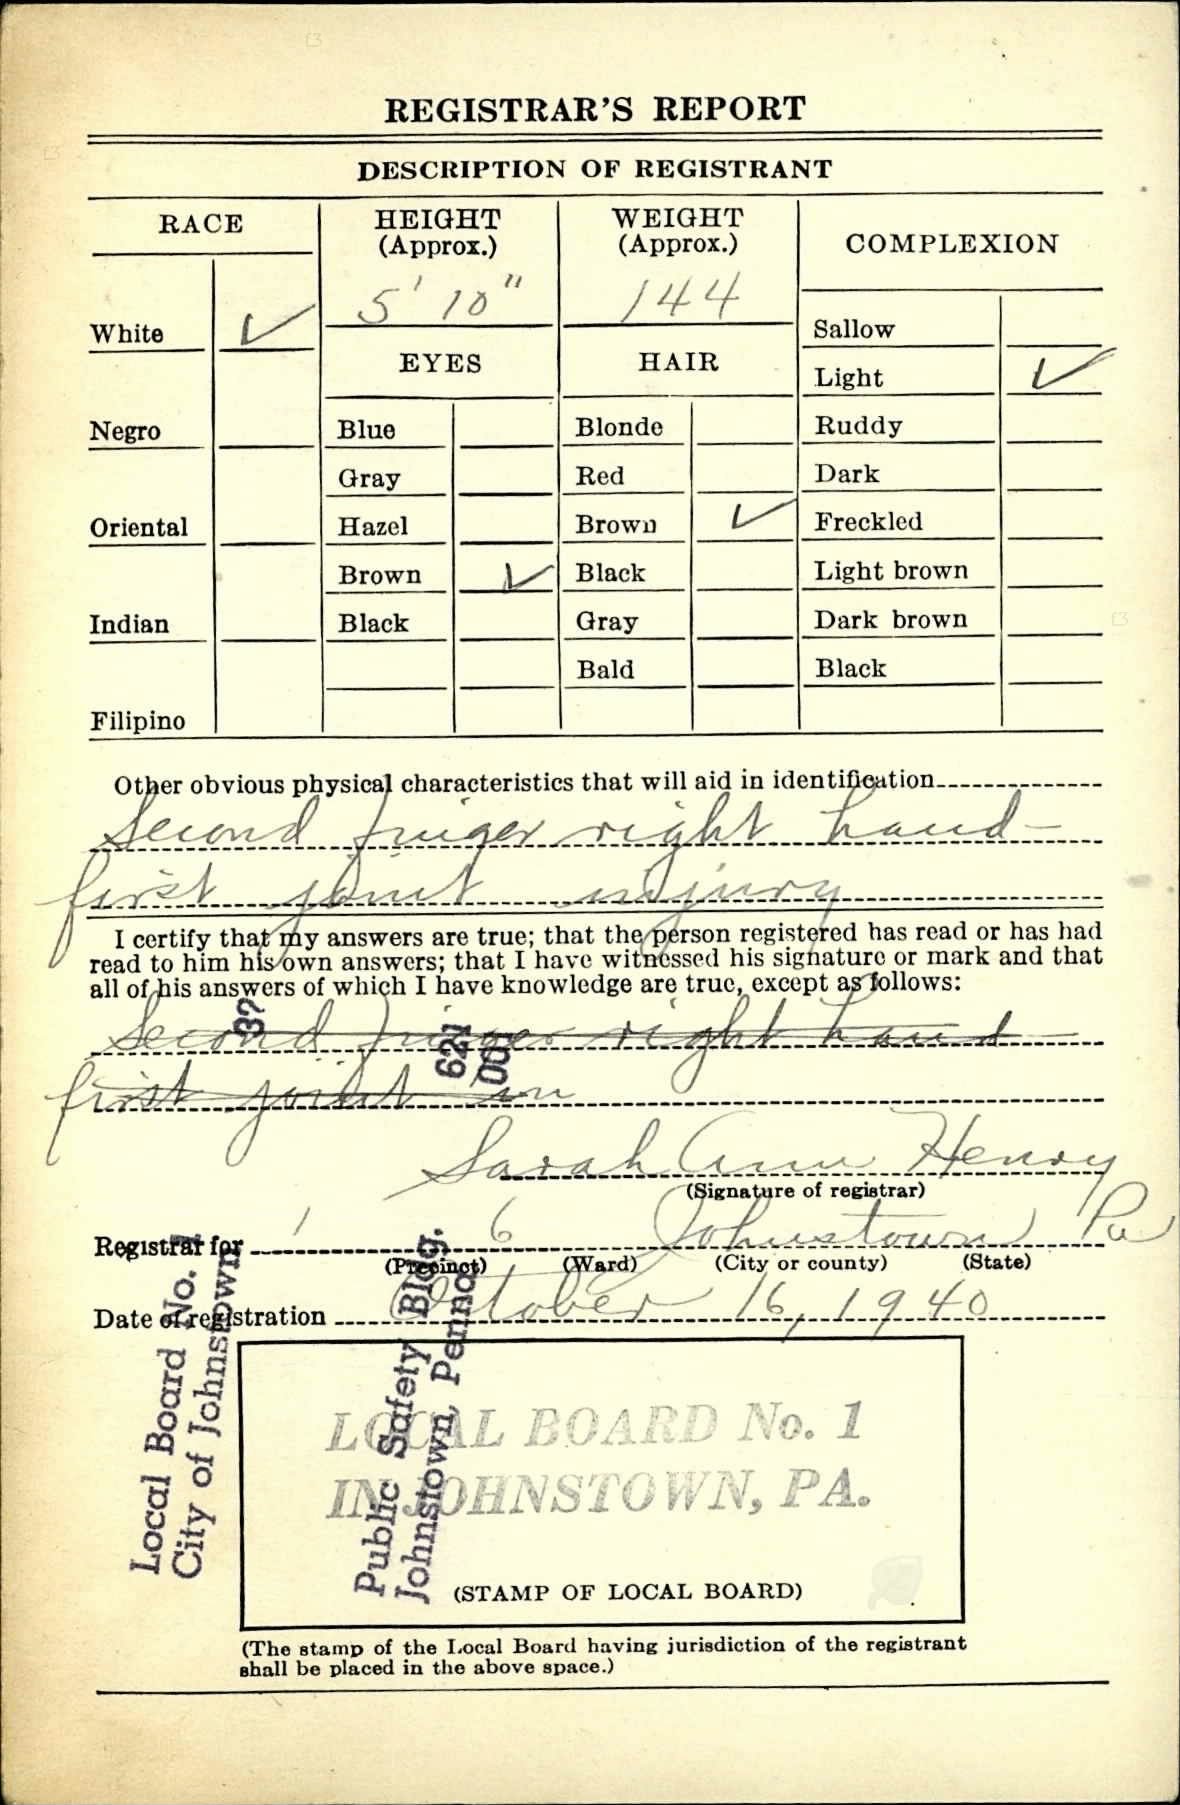 REGISTRAR'S REPORT
DESCRIPTION OF REGISTRANT
RACE
HEIGHT
(Approx.)
WEIGHT
(Approx.)
COMPLEXION
5' 10"
144
White ✓
Sallow
EYES
HAIR
Light ✓
Negro
Blue
Blonde
Ruddy
Gray
Red
Dark
Oriental
Hazel
Brown ✓
Freckled
Brown ✓
Black
Light brown
Indian
Black
Gray
Dark brown
Bald
Black
Filipino
Other obvious physical characteristics that will aid in identification
Second finger right hand-
first joint injury
I certify that my answers are true; that the person registered has read or has had
read to him his own answers; that I have witnessed his signature or mark and that
all of his answers of which I have knowledge are true, except as follows:
Second finger right hand
first joint in
37
621
00
Sarah Ann Henry
(Signature of registrar)
Registrar for 1 6 Johnstown Pa
(Precinct) (Ward) (City or county) (State)
Date of registration October 16, 1940
Local Board No. 1
City of Johnstown
Public Safety Bldg.
Johnstown, Penna
LOCAL BOARD No. 1
IN JOHNSTOWN, PA.
(STAMP OF LOCAL BOARD)
(The stamp of the Local Board having jurisdiction of the registrant
shall be placed in the above space.)